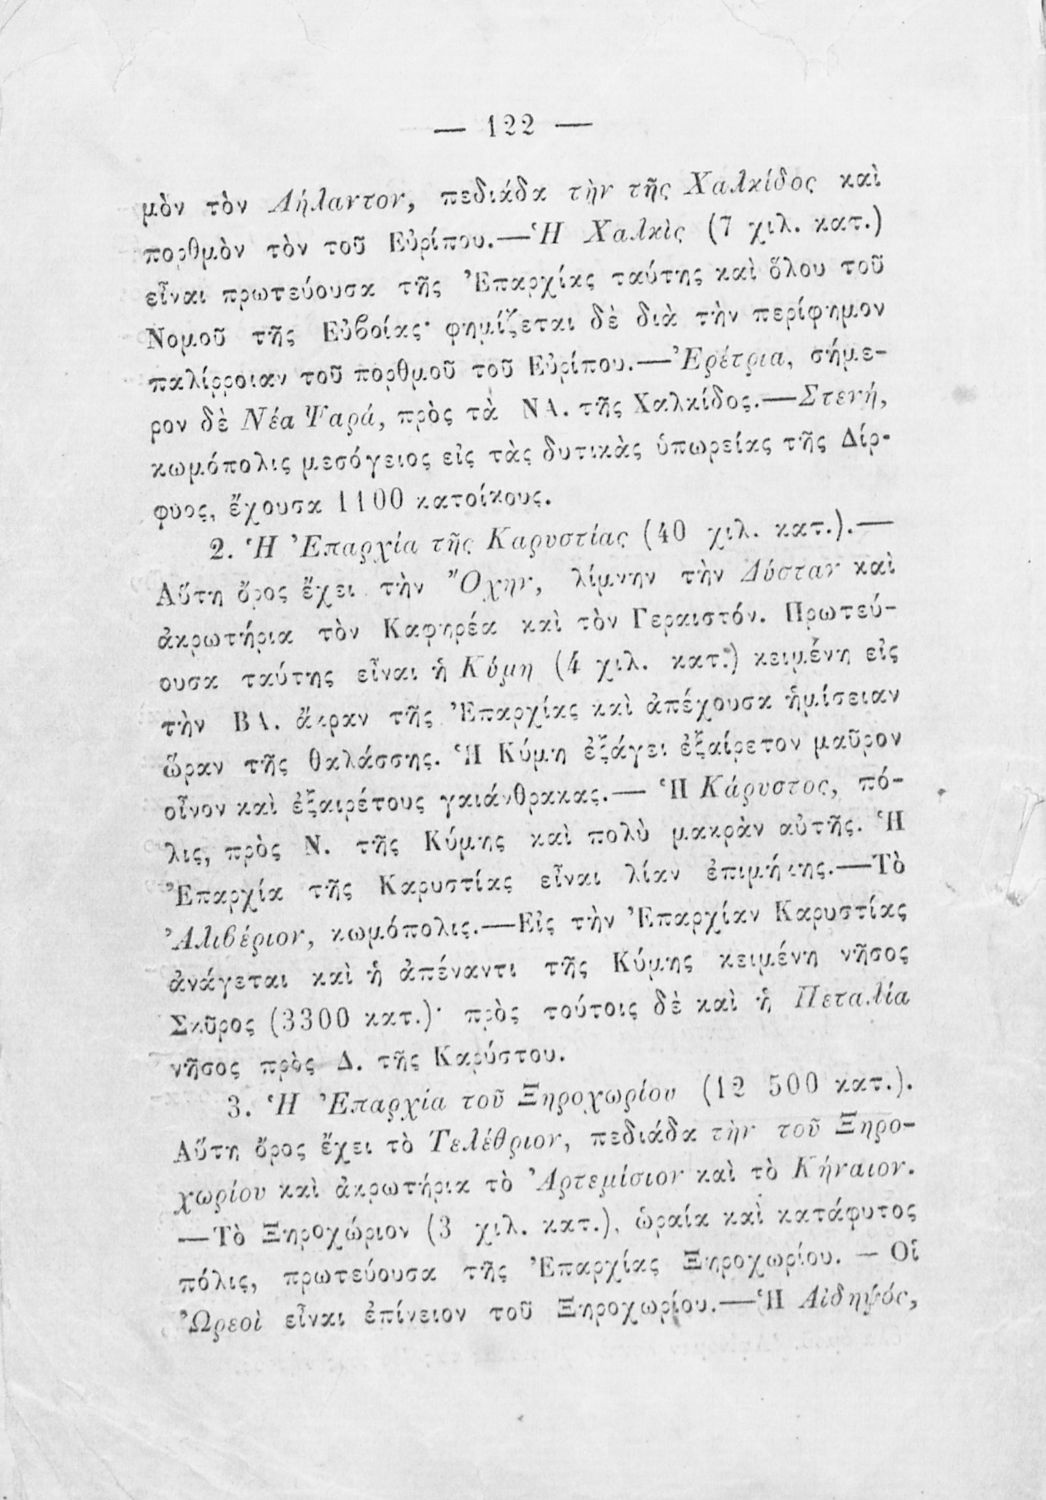 — 122 —
μὸν τὸν Λήλαντον, πεδιάδα τὴν τῆς Χαλκίδος καὶ
πορθμὸν τὸν τοῦ Εὐρίπου.—Ἡ Χαλκὶς (7 χιλ. κατ.)
εἶναι πρωτεύουσα τῆς Ἐπαρχίας ταύτης καὶ ὅλου τοῦ
Νομοῦ τῆς Εὐβοίας· φημίζεται δὲ διὰ τὴν περίφημον
παλίρροιαν τοῦ πορθμοῦ τοῦ Εὐρίπου.—Ἐρέτρια, σήμε-
ρον δὲ Νέα Ψαρά, πρὸς τὰ ΝΑ. τῆς Χαλκίδος.—Στενή,
κωμόπολις μεσόγειος εἰς τὰς δυτικὰς ὑπωρείας τῆς Δίρ-
φυος, ἔχουσα 1100 κατοίκους.
2. Ἡ Ἐπαρχία τῆς Καρυστίας (40 χιλ. κατ.).—
Αὕτη ὄρος ἔχει τὴν Ὄχην, λίμνην τὴν Δύσταν καὶ
ἀκρωτήρια τὸν Καφηρέα καὶ τὸν Γεραιστόν. Πρωτεύ-
ουσα ταύτης εἶναι ἡ Κύμη (4 χιλ. κατ.) κειμένη εἰς
τὴν ΒΑ. ἄκραν τῆς Ἐπαρχίας καὶ ἀπέχουσα ἡμίσειαν
ὥραν τῆς θαλάσσης. Ἡ Κύμη ἐξάγει ἐξαίρετον μαῦρον
οἶνον καὶ ἐξαιρέτους γαιάνθρακας.— Ἡ Κάρυστος, πό-
λις, πρὸς Ν. τῆς Κύμης καὶ πολὺ μακρὰν αὐτῆς. Ἡ
Ἐπαρχία τῆς Καρυστίας εἶναι λίαν ἐπιμήκης.—Τὸ
Ἀλιβέριον, κωμόπολις.—Εἰς τὴν Ἐπαρχίαν Καρυστίας
ἀνάγεται καὶ ἡ ἀπέναντι τῆς Κύμης κειμένη νῆσος
Σκῦρος (3300 κατ.)· πρὸς τούτοις δὲ καὶ ἡ Πεταλία
νῆσος πρὸς Δ. τῆς Καρύστου.
3. Ἡ Ἐπαρχία τοῦ Ξηροχωρίου (12 500 κατ.).
Αὕτη ὄρος ἔχει τὸ Τελέθριον, πεδιάδα τὴν τοῦ Ξηρο-
χωρίου καὶ ἀκρωτήρια τὸ Ἀρτεμίσιον καὶ τὸ Κήναιον.
—Τὸ Ξηροχώριον (3 χιλ. κατ.), ὡραία καὶ κατάφυτος
πόλις, πρωτεύουσα τῆς Ἐπαρχίας Ξηροχωρίου. — Οἱ
Ὠρεοὶ εἶναι ἐπίνειον τοῦ Ξηροχωρίου.—Ἡ Αἰδηψός,